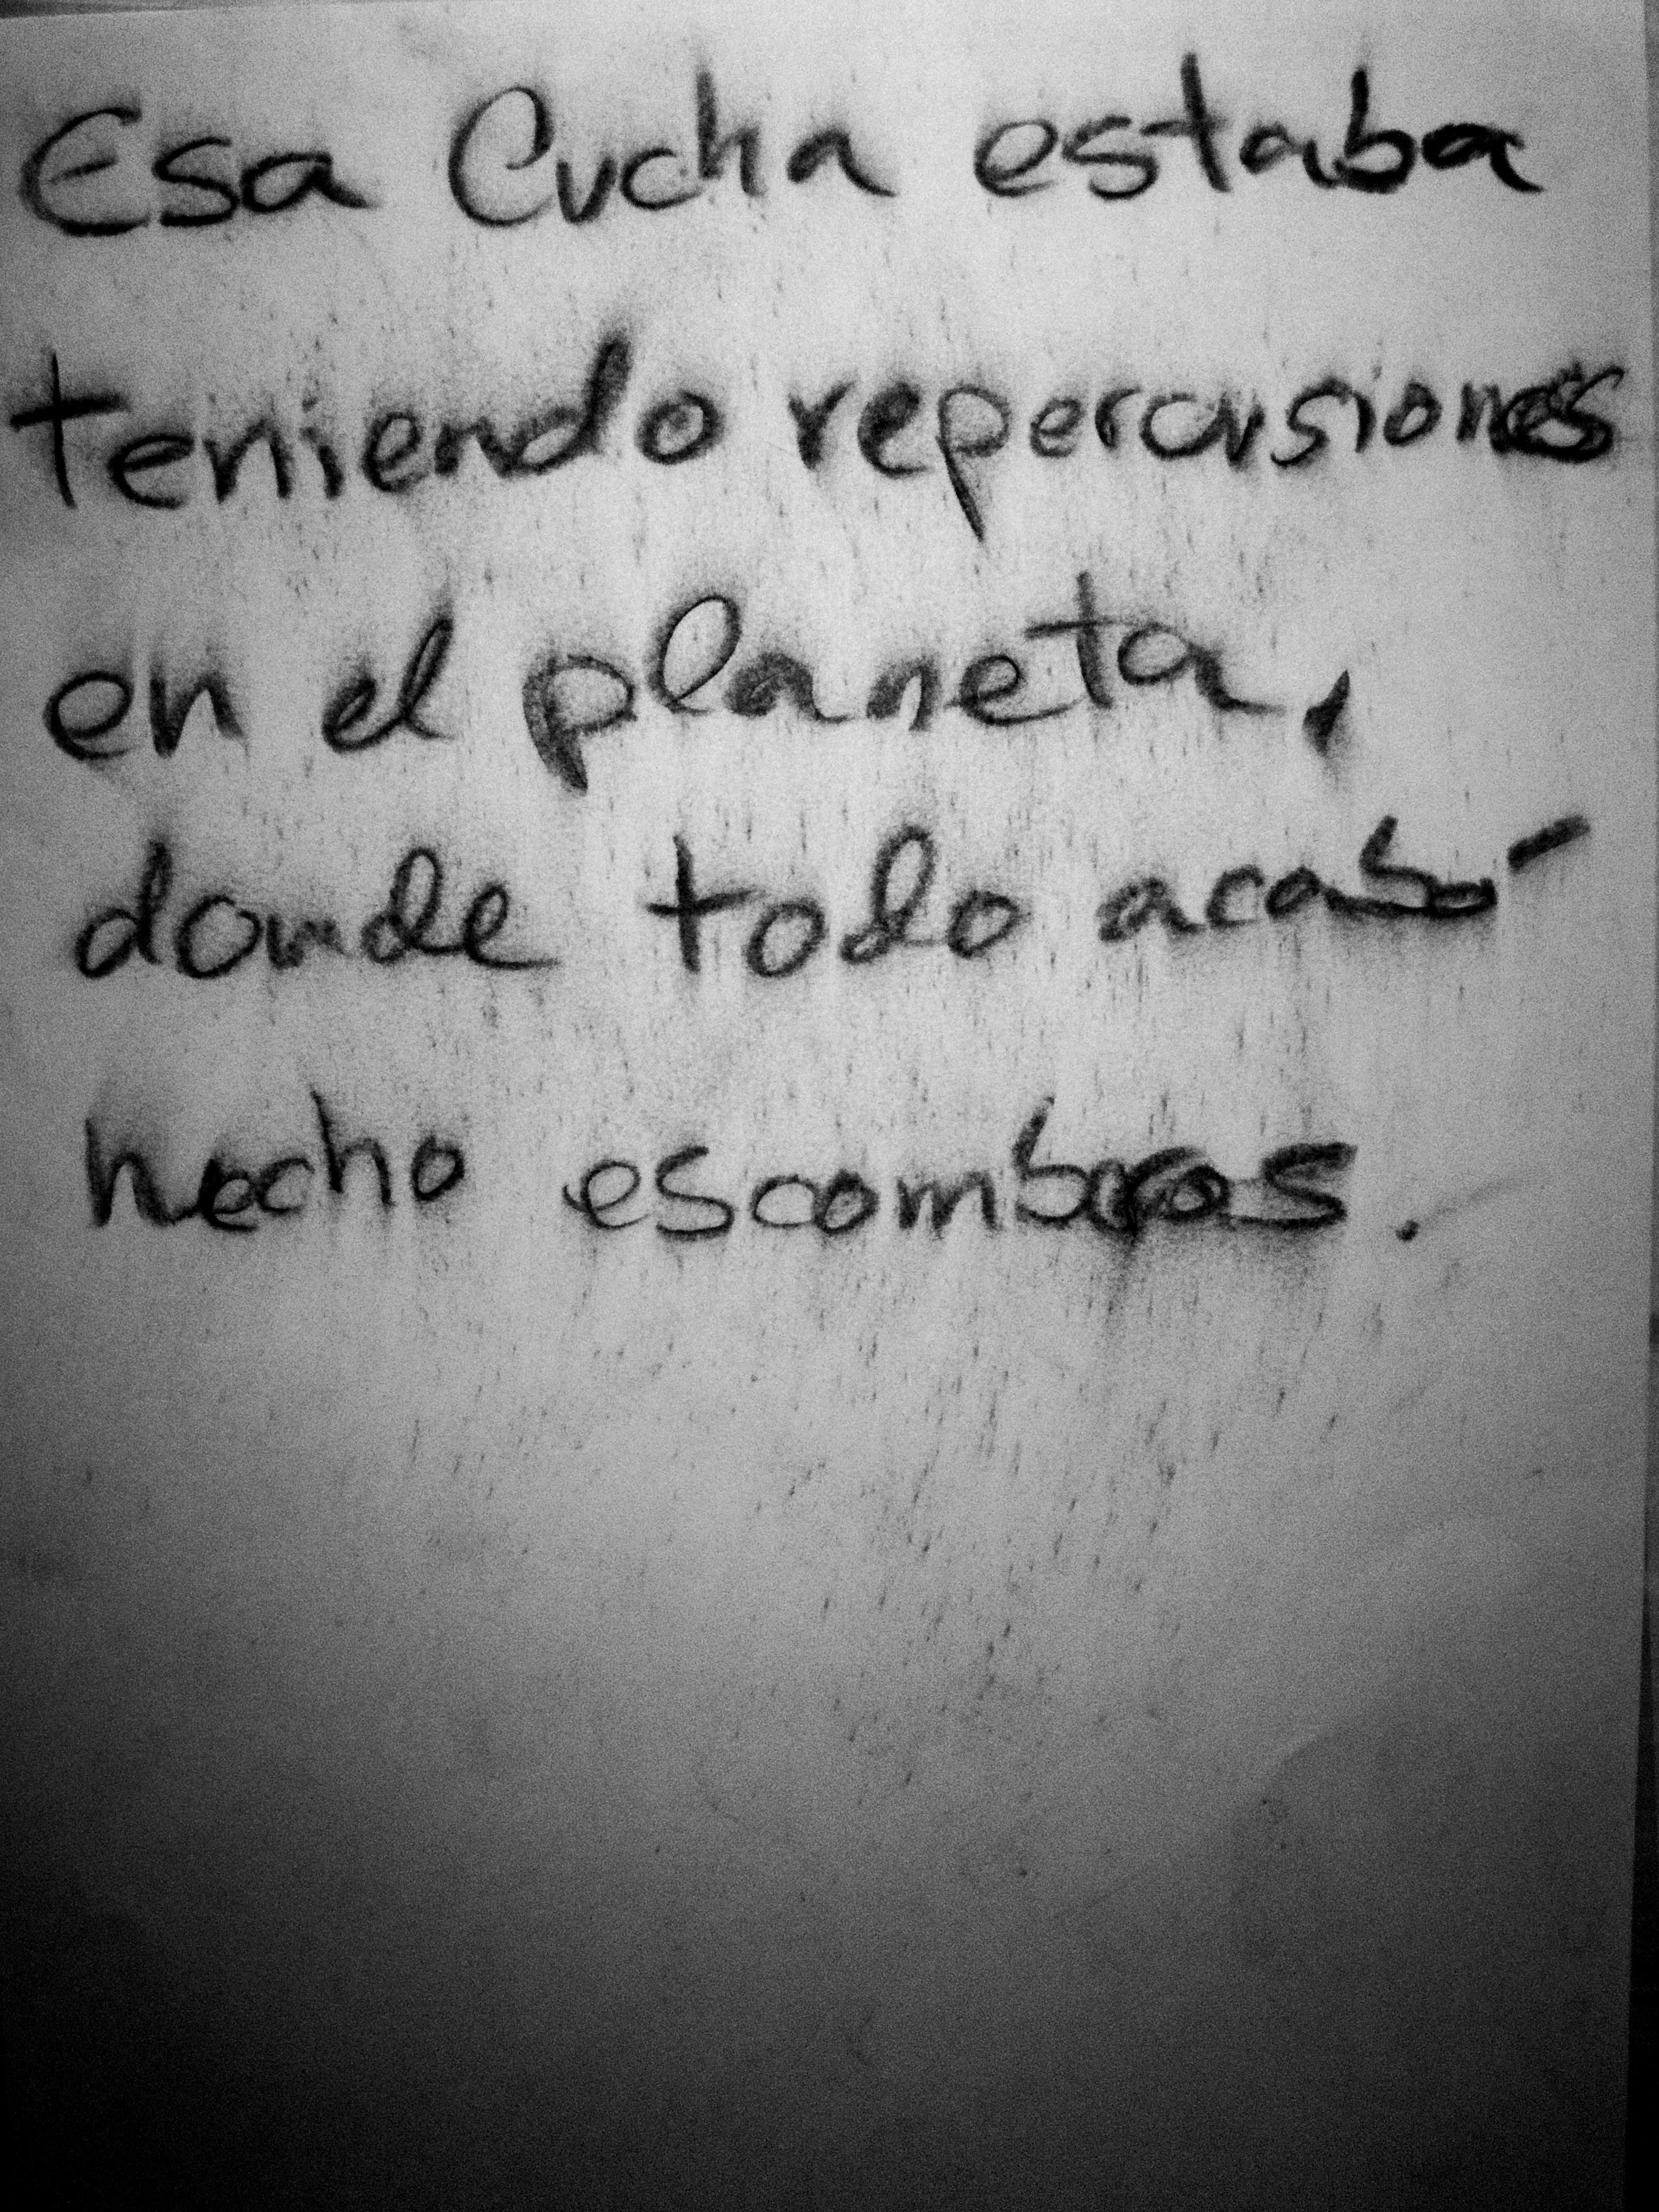 Esa Cucha estaba
teniendo repercusiones
en el planeta,
donde todo acabó
hecho escombros.